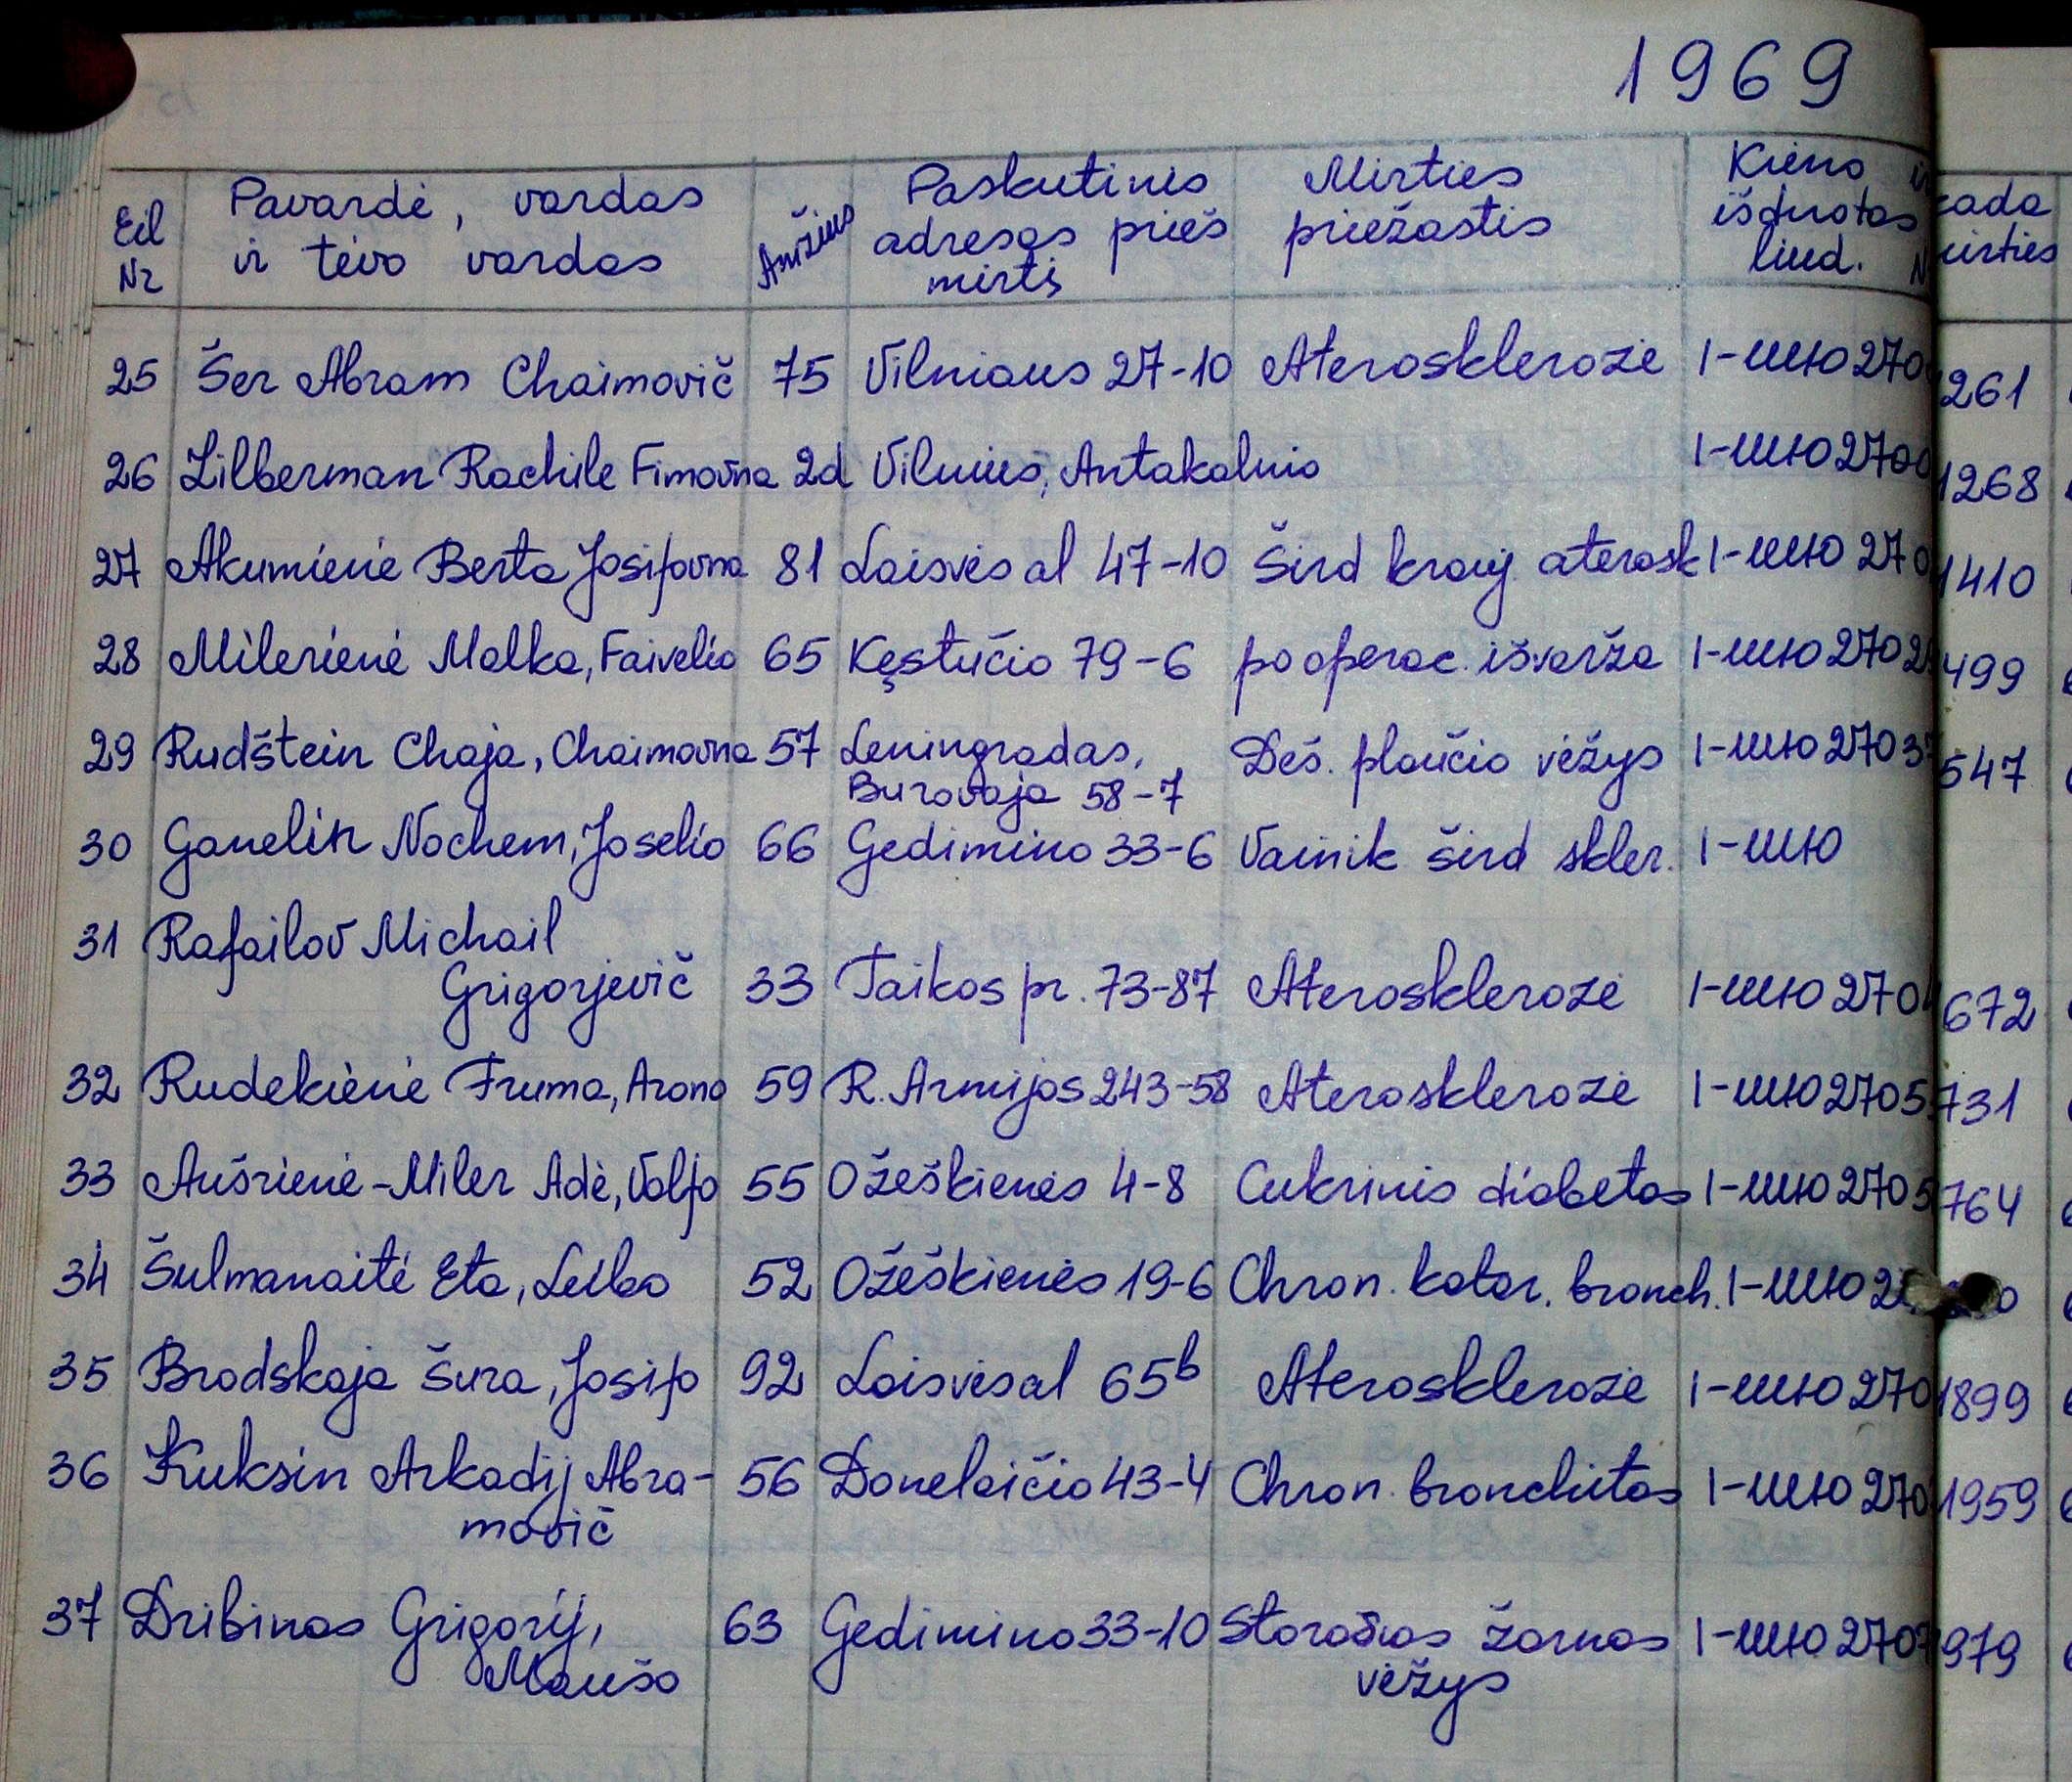 1969
Eil Nr | Pavardė, vardas ir tėvo vardas | Amžius | Paskutinis adresas prieš mirtį | Mirties priežastis | Kieno išduotas liud.
25 Šer Abram Chaimovič 75 Vilniaus 27-10 Aterosklerozė I-ШЮ 270 261
26 Lilberman Rachile Fimovna 2d Vilnius, Antakalnio I-ШЮ 270 1268
27 Akumienė Berta Josifovna 81 Laisvės al 47-10 Šird krauj. aterosk I-ШЮ 270 1410
28 Milerienė Malka, Faivelio 65 Kęstučio 79-6 pooperac. išvarža I-ШЮ 2702 499
29 Rudštein Chaja, Chaimovna 57 Leningradas, Deš. plaučio vėžys I-ШЮ 2703 547
Burovaja 58-7
30 Ganelin Nochem, Joselio 66 Gedimino 33-6 Vainik šird skler. I-ШЮ
31 Rafailov Michail
Grigorjevič 33 Taikos pr. 73-87 Aterosklerozė I-ШЮ 270 672
32 Rudekienė Fruma, Arono 59 R. Armijos 243-58 Aterosklerozė I-ШЮ 2705 731
33 Aušrienė-Miler Adė, Volfo 55 Ožeškienės 4-8 Cukrinis diabetas I-ШЮ 2705 764
34 Šulmanaitė Eta, Leibo 52 Ožeškienės 19-6 Chron. katar. bronch. I-ШЮ
35 Brodskaja Šura, Josifo 92 Laisvės al 65b Aterosklerozė I-ШЮ 270 1899
36 Kuksin Arkadij Abra- 56 Donelaičio 43-4 Chron. bronchitas I-ШЮ 270 1959
movič
37 Dribinas Grigorij, 63 Gedimino 33-10 Storosios žarnos I-ШЮ 2707 979
Maušo vėžys